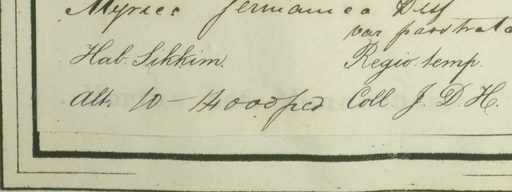 Myric: germanica Desf
var prostrata
Hab. Sikkim. Regio. temp.
Alt. 10-14000 ped Coll J D H.